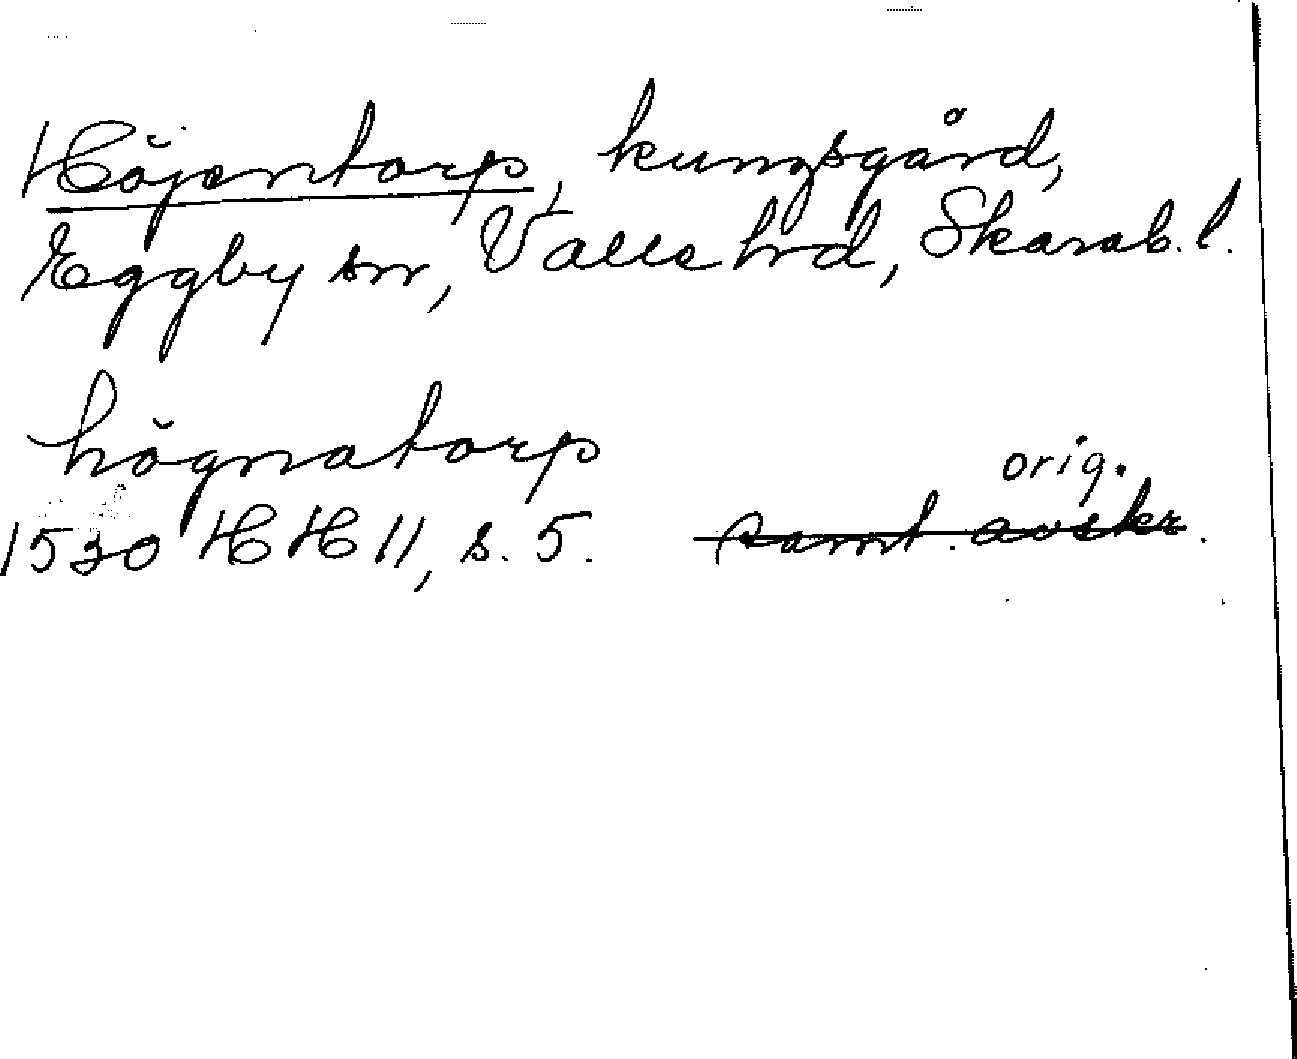 Höjentorp, kungsgård,
Eggby sn, Valle hrd, Skarab. l.
högnatorp
orig.
1530 HH 11, s. 5. samt. avskr.